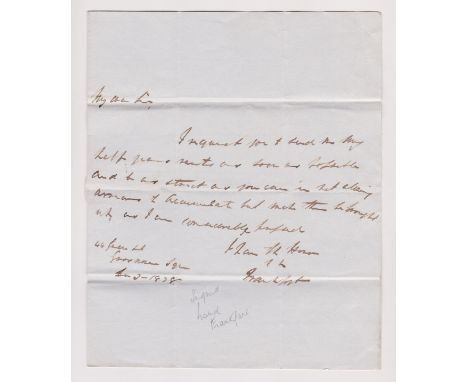 My dear Sir,
I request you to send me my
half years rents as soon as possible
and be as strict as you can in not allowing
arrears to accumulate but make them be brought
up as I am considerably
I have the Honor
44
Grosvenor Sqre
2 - 1838 Frankfort
Signed
Lord
Frankfort